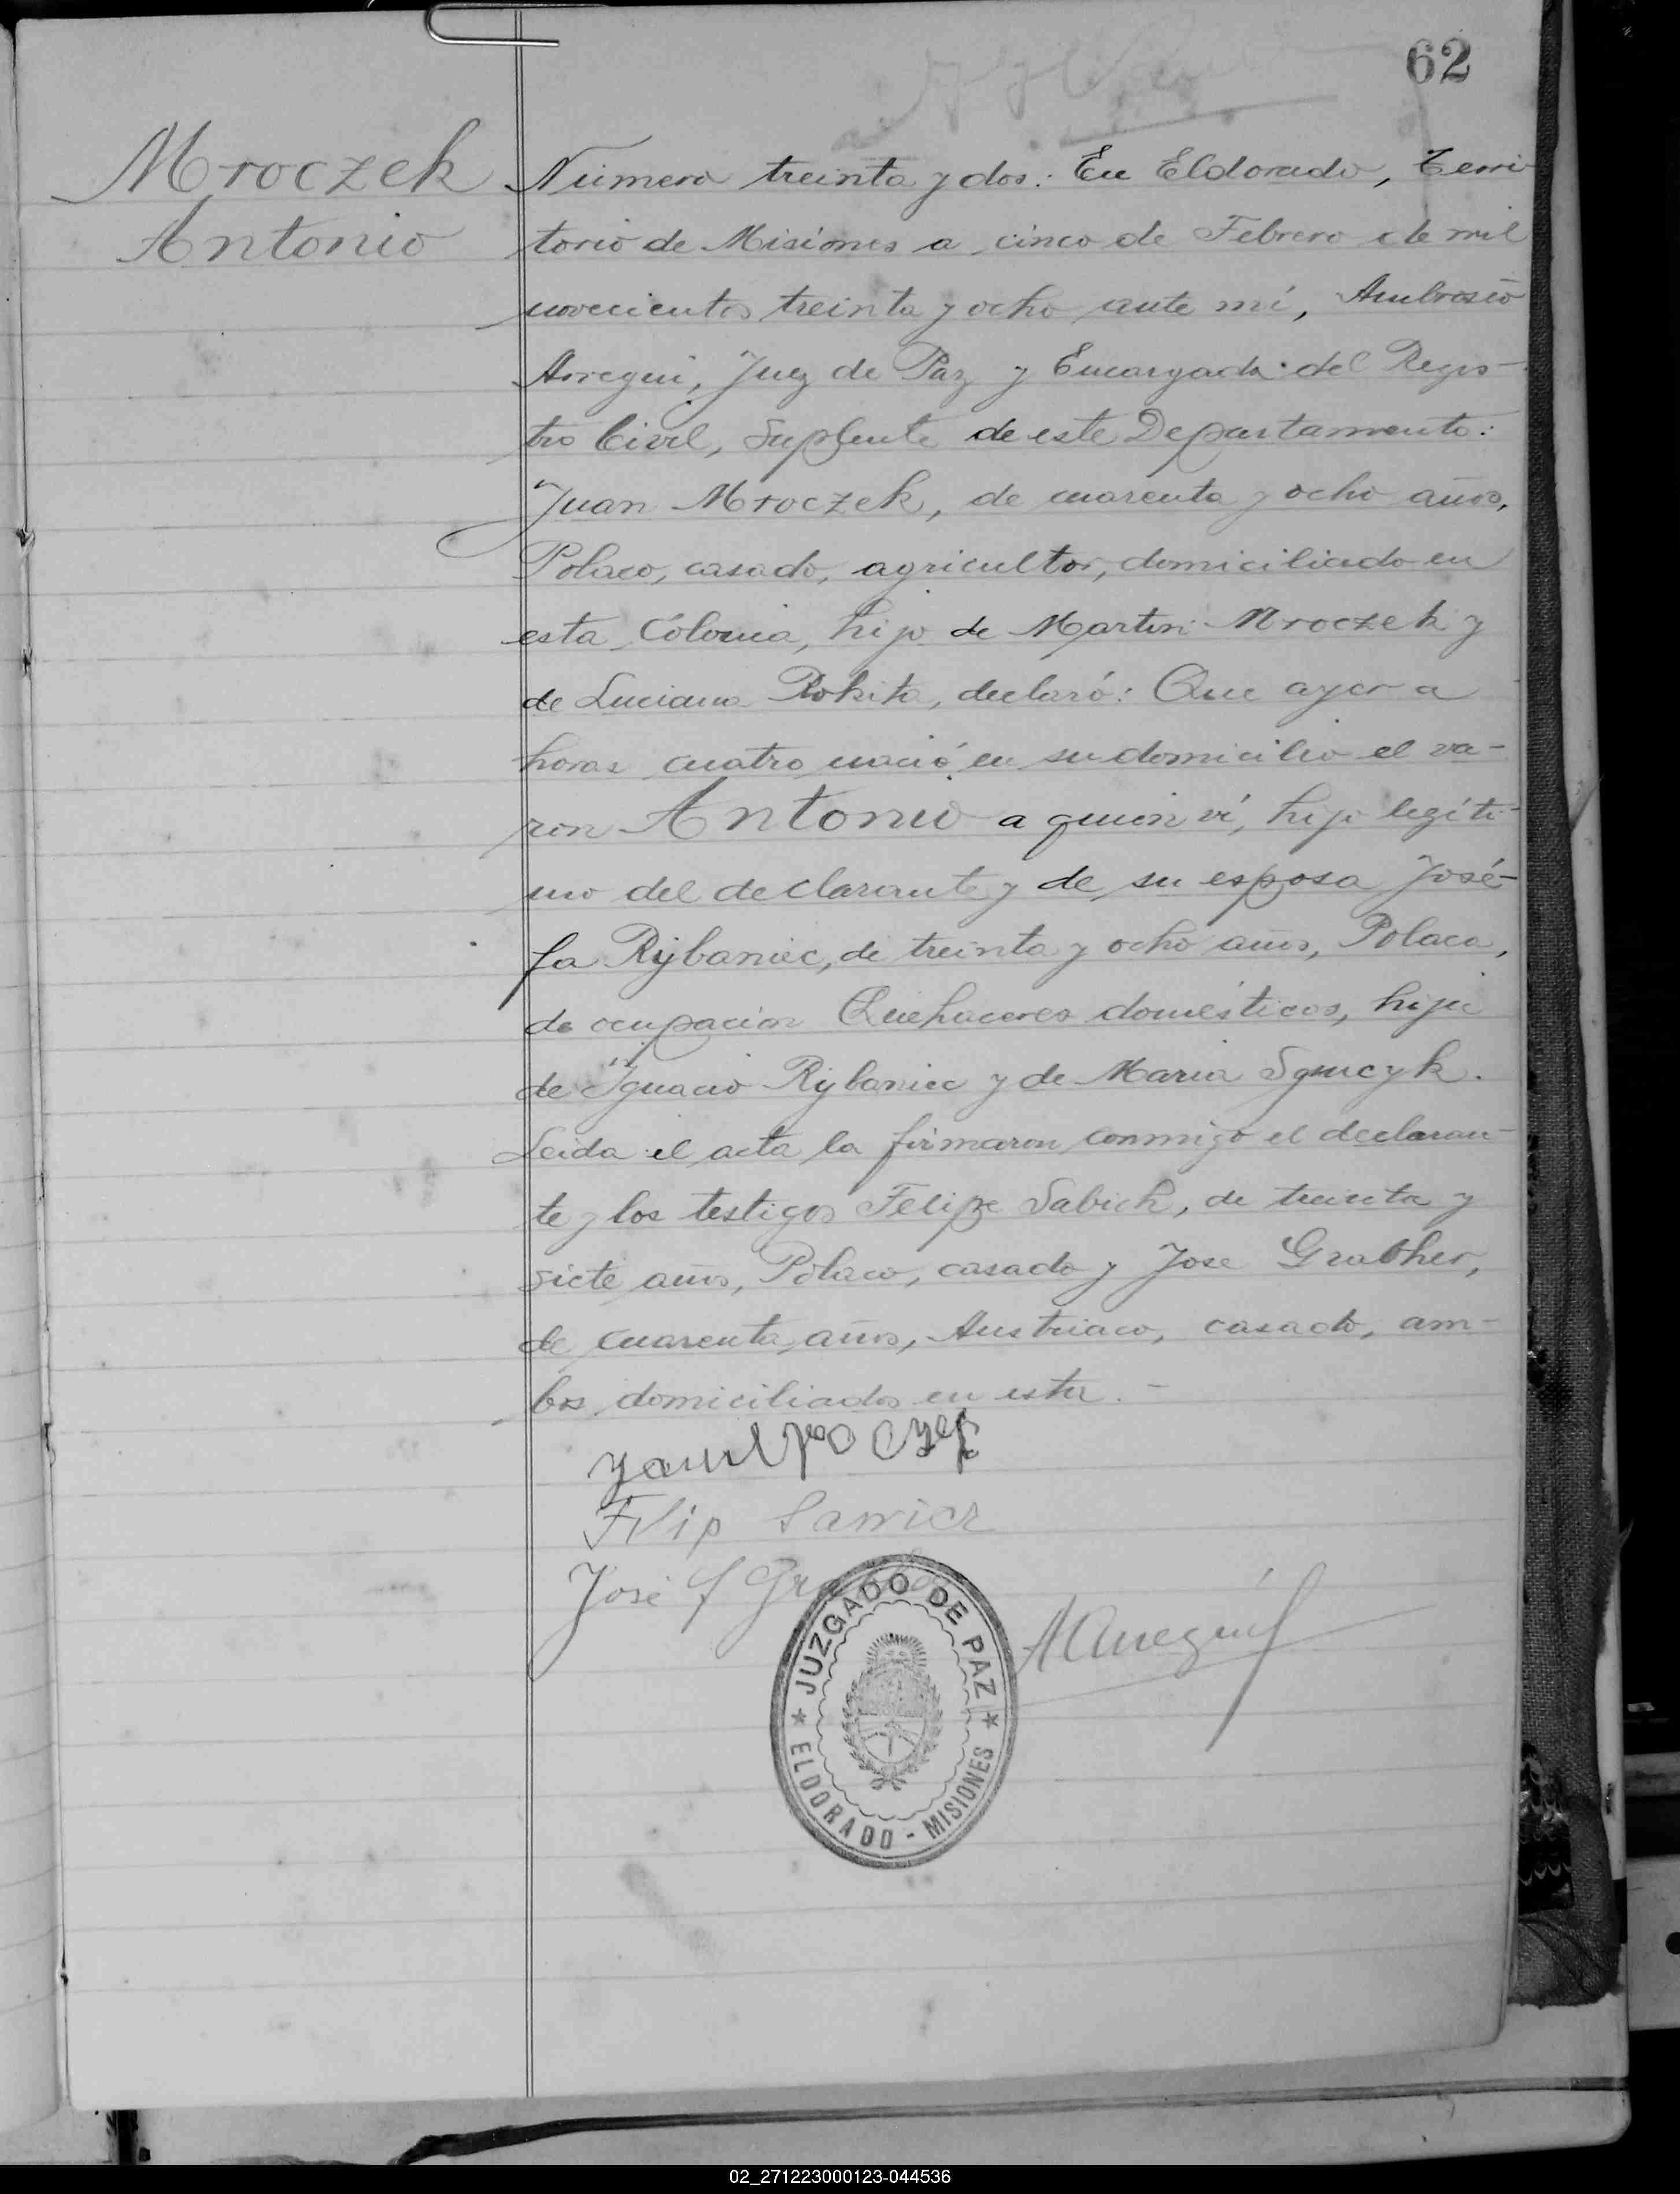 62
Mroczek
Antonio
Número treinta y dos: En Eldorado, Terri
torio de Misiones a cinco de Febrero de mil
novecientos treinta y ocho ante mí, Ambrosio
Arregui, Juez de Paz y Encargado del Regis-
tro Civil, Suplente de este Departamento:
Juan Mroczek, de cuarenta y ocho años,
Polaco, casado, agricultor, domiciliado en
esta Colonia, hijo de Martin Mroczek y
de Luciana Rokita, declaró: Que ayer a
horas cuatro nació en su domicilio el va-
ron Antonio a quien ví, hijo legíti-
mo del declarante y de su esposa José-
fa Rybaniec, de treinta y ocho años, Polaca,
de ocupacion Quehaceres domésticos, hija
de Ignacio Rybaniec y de Maria
Leida el acta la firmaron conmigo el declaran-
te y los testigos Felipe Sabich, de treinta y
siete años, Polaco, casado y Jose Grabher,
de cuarenta años, Austriaco, casado, am-
bos domiciliados en esta.-
Filip
José f
AArregui
JUZGADO DE PAZ
ELDORADO - MISIONES
02_271223000123-044536